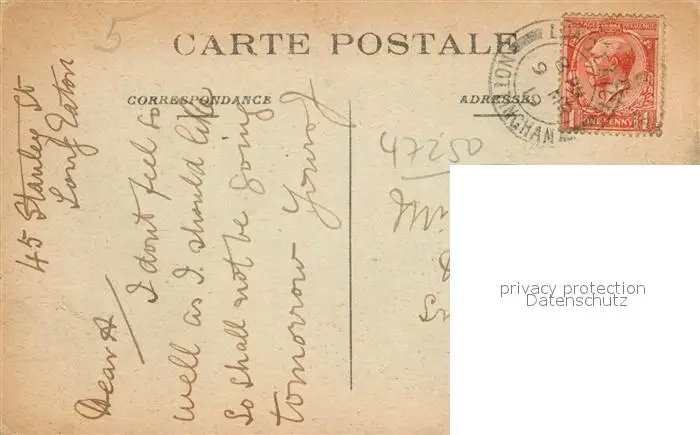 5
CARTE POSTALE
CORRESPONDANCE
ADRESSE
47250
45 Stanley St
Long Eaton
Dear A
I dont feel so
well as I should like
So shall not be going
tomorrow Yours J
LONG EATON
NOTTINGHAM
ONE PENNY
privacy protection
Datenschutz